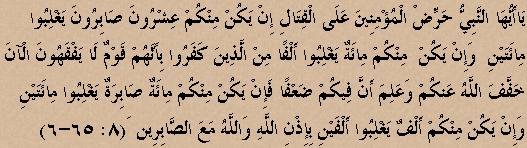 يَاأَيُّهَا النَّبِيُّ حَرِّضْ الْمُؤْمِنِينَ عَلَى الْقِتَالِ إِنْ يَكُنْ مِنْكُمْ عِشْرُونَ صَابِرُونَ يَغْلِبُوا
مِائَتَيْنِ وَإِنْ يَكُنْ مِنْكُمْ مِائَةٌ يَغْلِبُوا أَلْفًا مِنْ الَّذِينَ كَفَرُوا بِأَنَّهُمْ قَوْمٌ لَا يَفْقَهُونَ الْآنَ
خَفَّفَ اللَّهُ عَنكُمْ وَعَلِمَ أَنَّ فِيكُمْ ضَعْفًا فَإِنْ يَكُنْ مِنْكُمْ مِائَةٌ صَابِرَةٌ يَغْلِبُوا مِائَتَيْنِ
وَإِنْ يَكُنْ مِنْكُمْ أَلْفٌ يَغْلِبُوا أَلْفَيْنِ بِإِذْنِ اللَّهِ وَاللَّهُ مَعَ الصَّابِرِينَ (٨: ٦٥-٦)